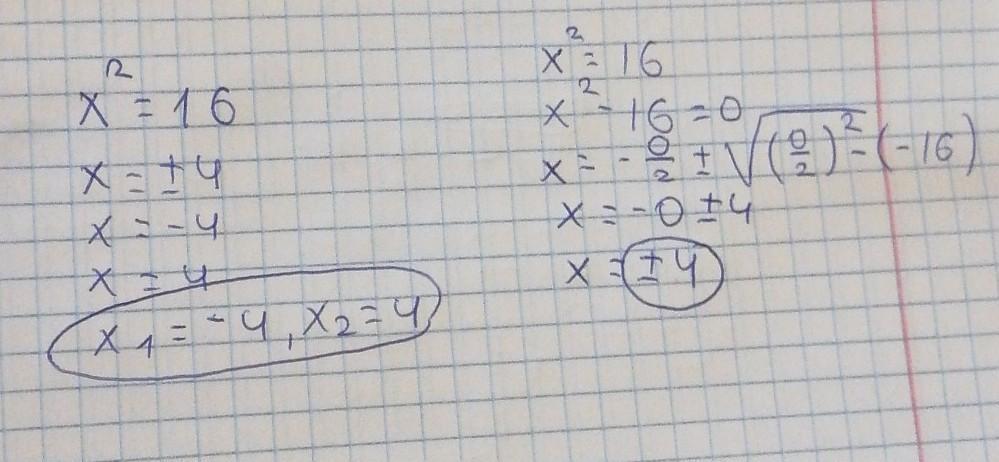 x² = 16
x = ±4
x = -4
x = 4
x₁ = -4, x₂ = 4
x² = 16
x² - 16 = 0
x = -0/2 ± √((0/2)² - (-16))
x = -0 ± 4
x = ±4